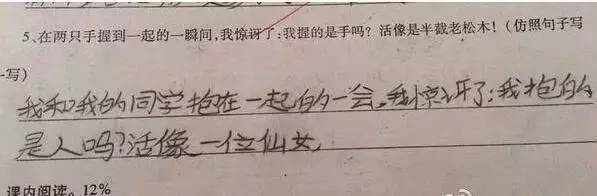 5、在两只手握到一起的一瞬间,我惊讶了:我握的是手吗?活像是半截老松木!(仿照句子写
一写)
我和我的同学抱在一起的一会,我惊讶了:我抱的
是人吗?活像一位仙女.
课内阅读。12%